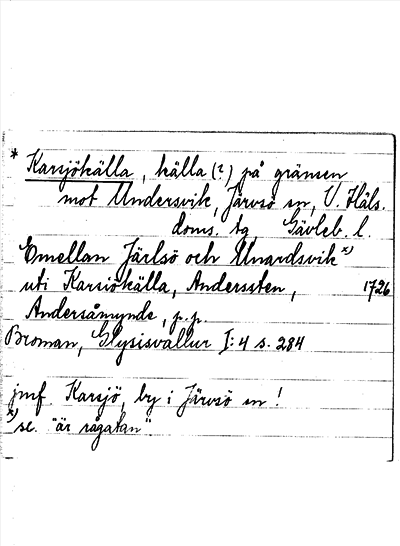 * Karsjökälla, källa (?) på gränsen
mot Undersvik, Järvsö sn, V. Häls.
doms. tg, Gävleb. l.
Emellan Järlsö och Unardsvik x)
uti Karsiökälla, Anderssten, 1726
Andersåmynde, p.p.
Broman, Glysisvallur I:4 s. 284
jmf. Karsjö, by i Järvsö sn!
x) sc. "är rågatan"